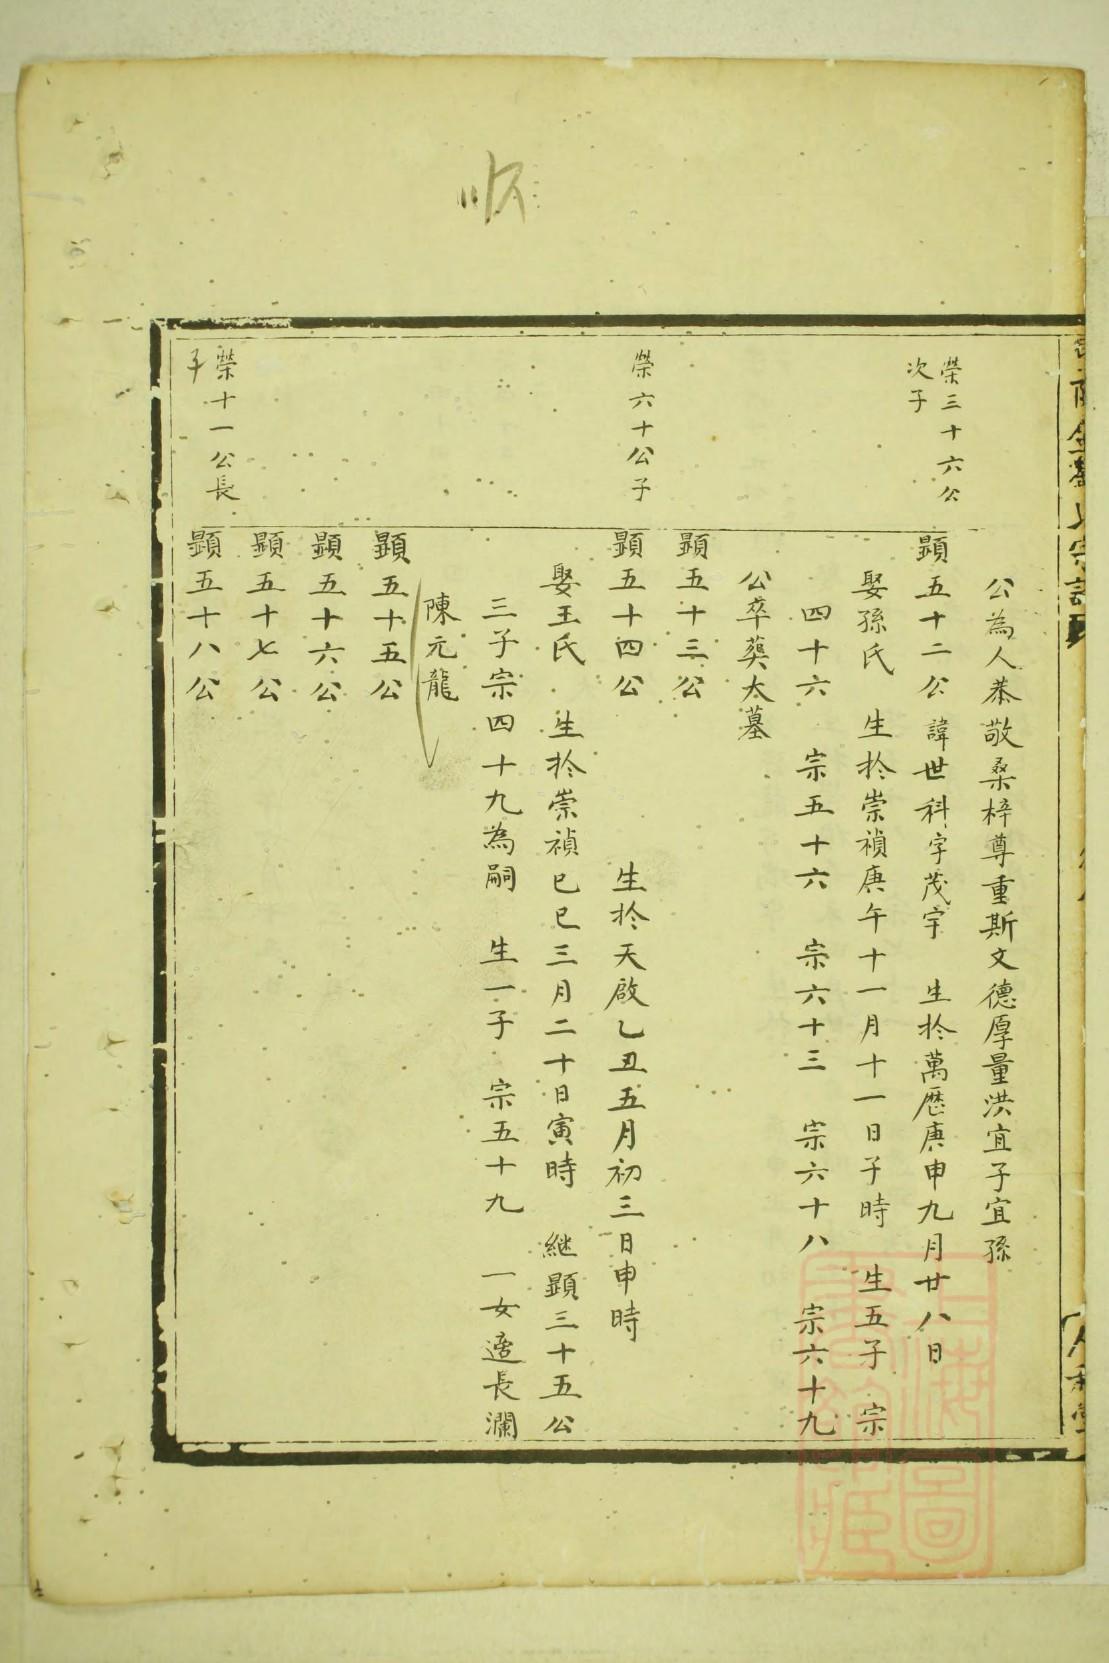 公為人恭敬桑梓尊重斯文德厚量洪宜子宜孫
榮三十六公
次子
顯五十二公 諱世科字茂宇 生於萬歷庚申九月廿八日
娶孫氏 生於崇禎庚午十一月十一日子時 生五子 宗
四十六 宗五十六 宗六十三 宗六十八 宗六十九
公卒葬太墓
顯五十三公
榮六十公子
顯五十四公 生於天啟乙丑五月初三日申時
娶王氏 生於崇禎已巳三月二十日寅時 継顯三十五公
三子宗四十九為嗣 生一子 宗五十九 一女適長瀾
陳元龍
顯五十五公
顯五十六公
顯五十七公
榮十一公長
子
顯五十八公
上海圖
書館藏